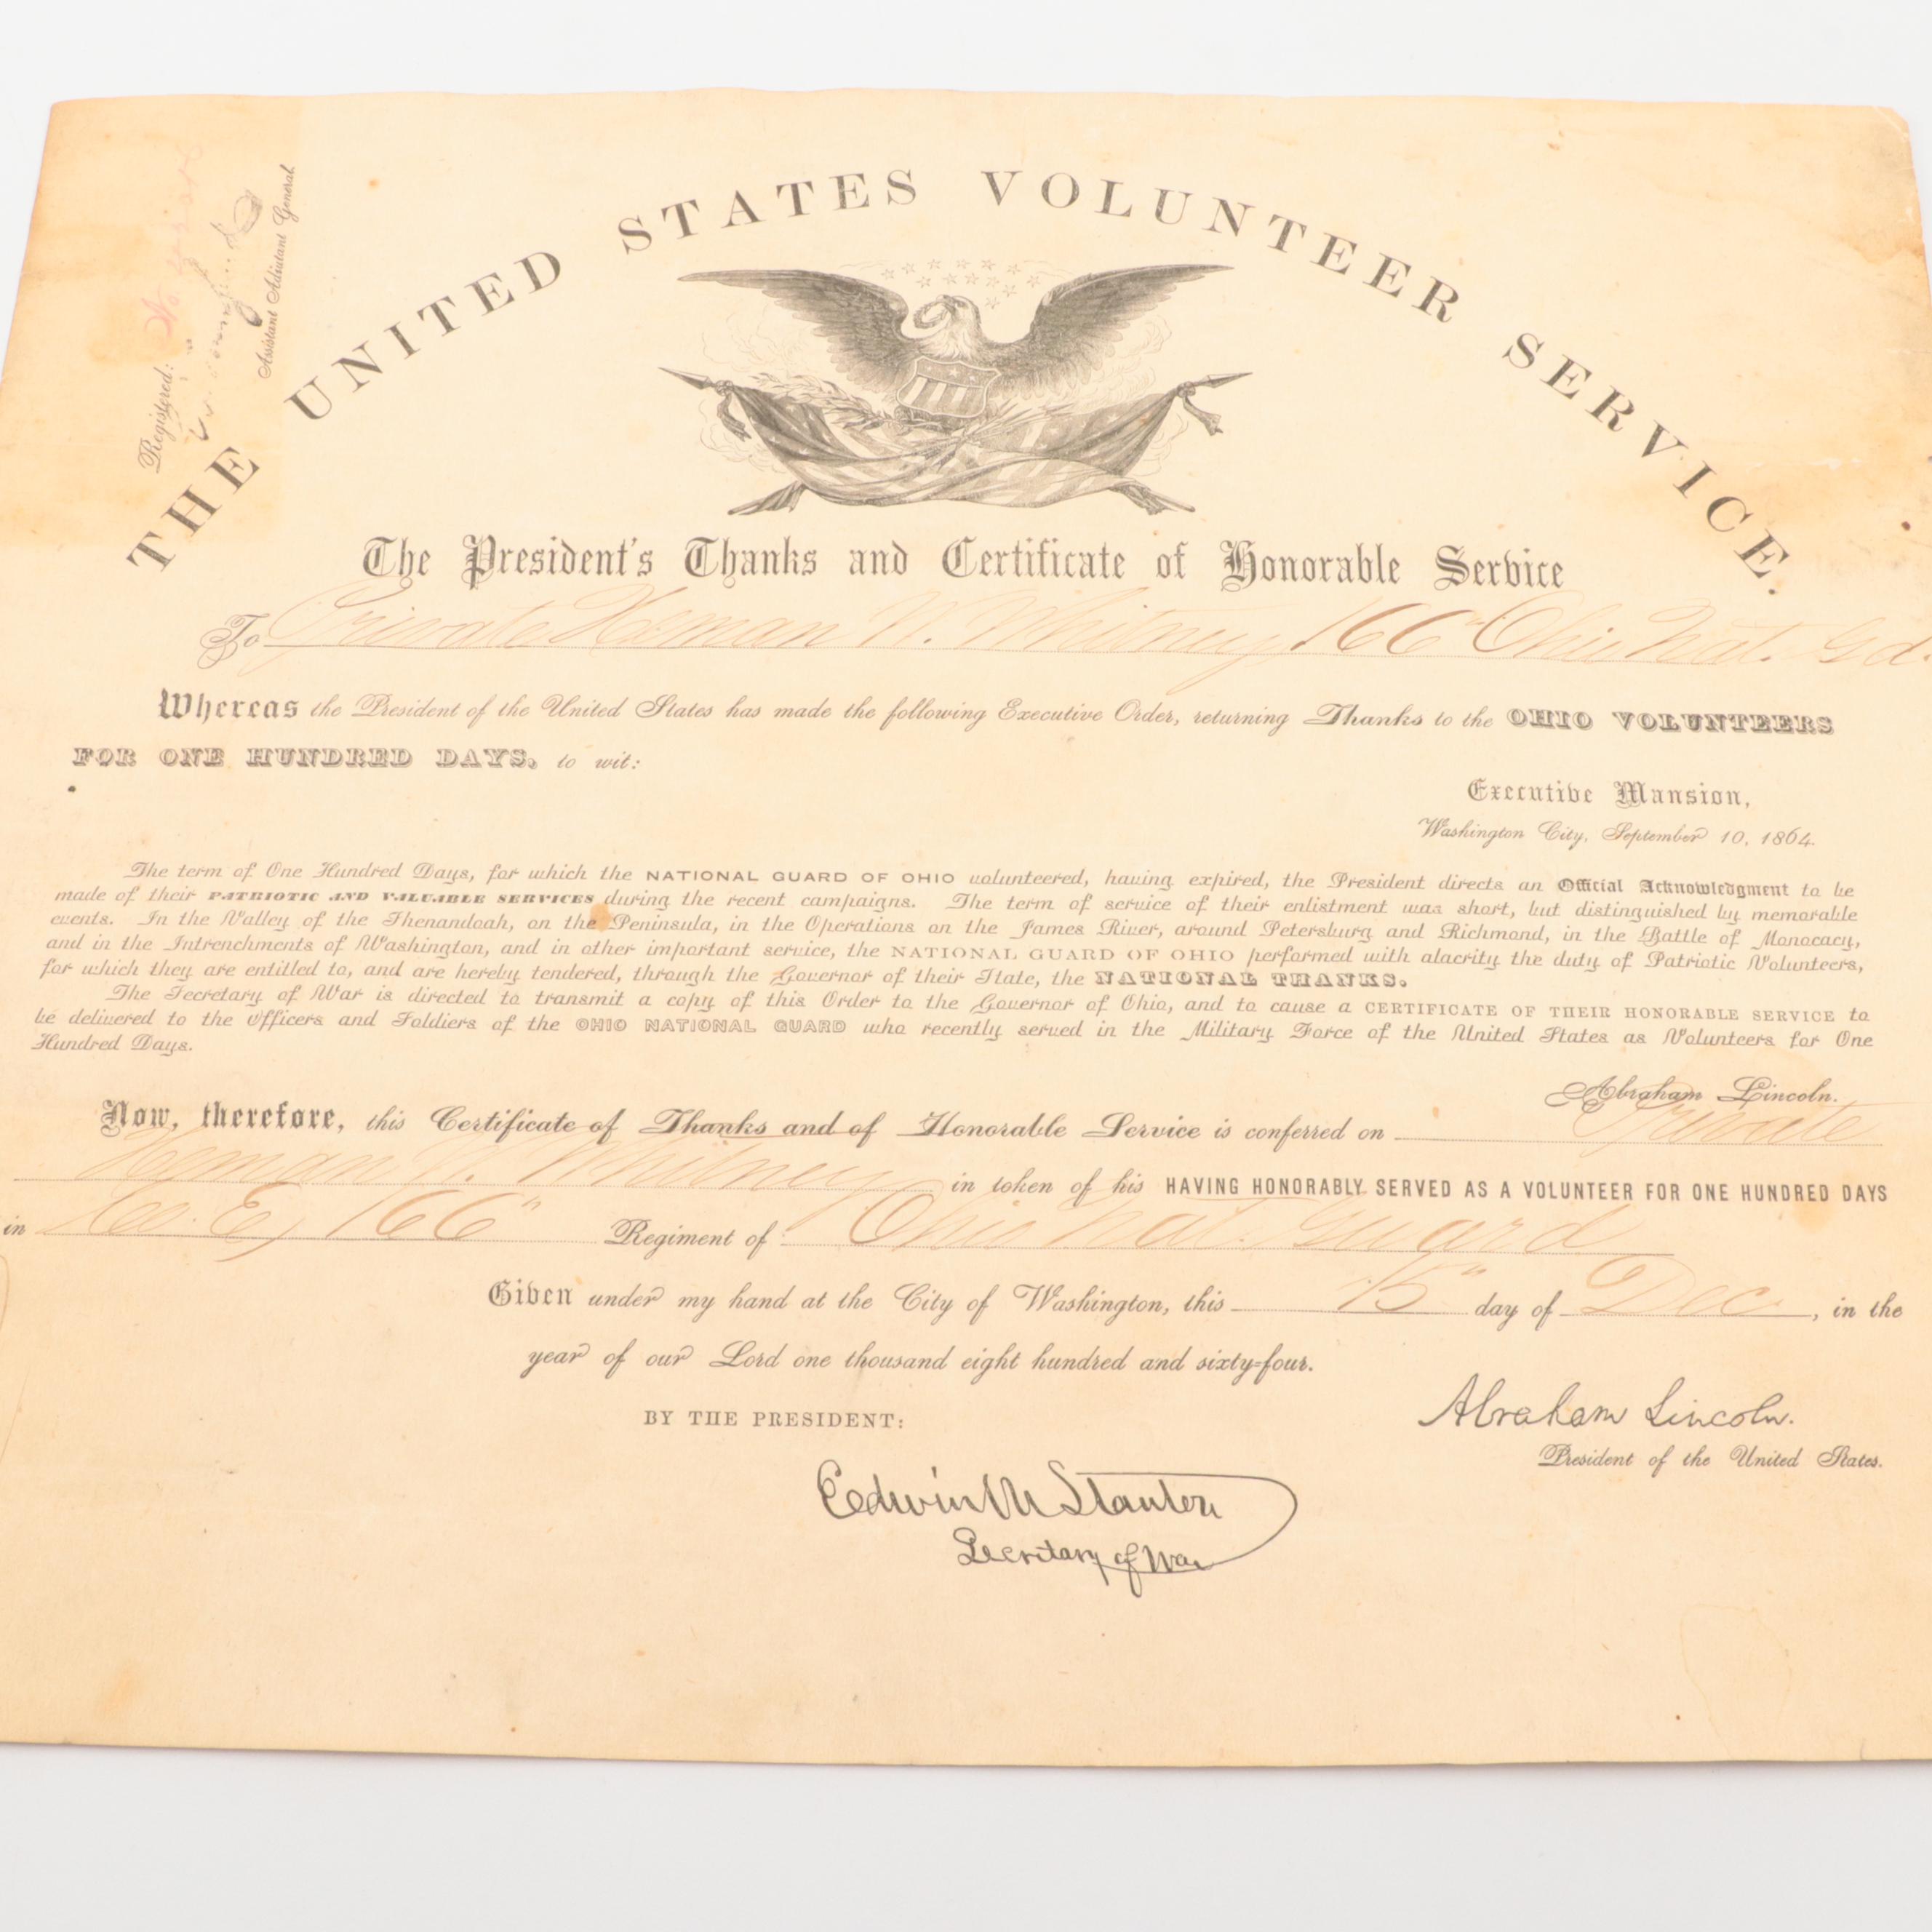 THE UNITED STATES VOLUNTEER SERVICE.
Registered: No.
Assistant Adjutant General
The President's Thanks and Certificate of Honorable Service
To Private Heman N. Whitney, 166" Ohio Nat. Gd.
Whereas the President of the United States has made the following Executive Order, returning Thanks to the OHIO VOLUNTEERS
FOR ONE HUNDRED DAYS, to wit:
Executive Mansion,
Washington City, September 10, 1864.
The term of One Hundred Days, for which the NATIONAL GUARD OF OHIO volunteered, having expired, the President directs an Official Acknowledgment to be
made of their PATRIOTIC AND VALUABLE SERVICES during the recent campaigns. The term of service of their enlistment was short, but distinguished by memorable
events. In the Valley of the Shenandoah, on the Peninsula, in the Operations on the James River, around Petersburg and Richmond, in the Battle of Monocacy,
and in the Intrenchments of Washington, and in other important service, the NATIONAL GUARD OF OHIO performed with alacrity the duty of Patriotic Volunteers,
for which they are entitled to, and are hereby tendered, through the Governor of their State, the NATIONAL THANKS.
The Secretary of War is directed to transmit a copy of this Order to the Governor of Ohio, and to cause a CERTIFICATE OF THEIR HONORABLE SERVICE to
be delivered to the Officers and Soldiers of the OHIO NATIONAL GUARD who recently served in the Military Force of the United States as Volunteers for One
Hundred Days.
Abraham Lincoln.
Now, therefore, this Certificate of Thanks and of Honorable Service is conferred on Private
Heman N. Whitney in token of his HAVING HONORABLY SERVED AS A VOLUNTEER FOR ONE HUNDRED DAYS
in Co. E, 166" Regiment of Ohio Nat. Guard
Given under my hand at the City of Washington, this 15" day of Dec, in the
year of our Lord one thousand eight hundred and sixty-four.
BY THE PRESIDENT:
Abraham Lincoln.
President of the United States.
Edwin M Stanton
Secretary of War